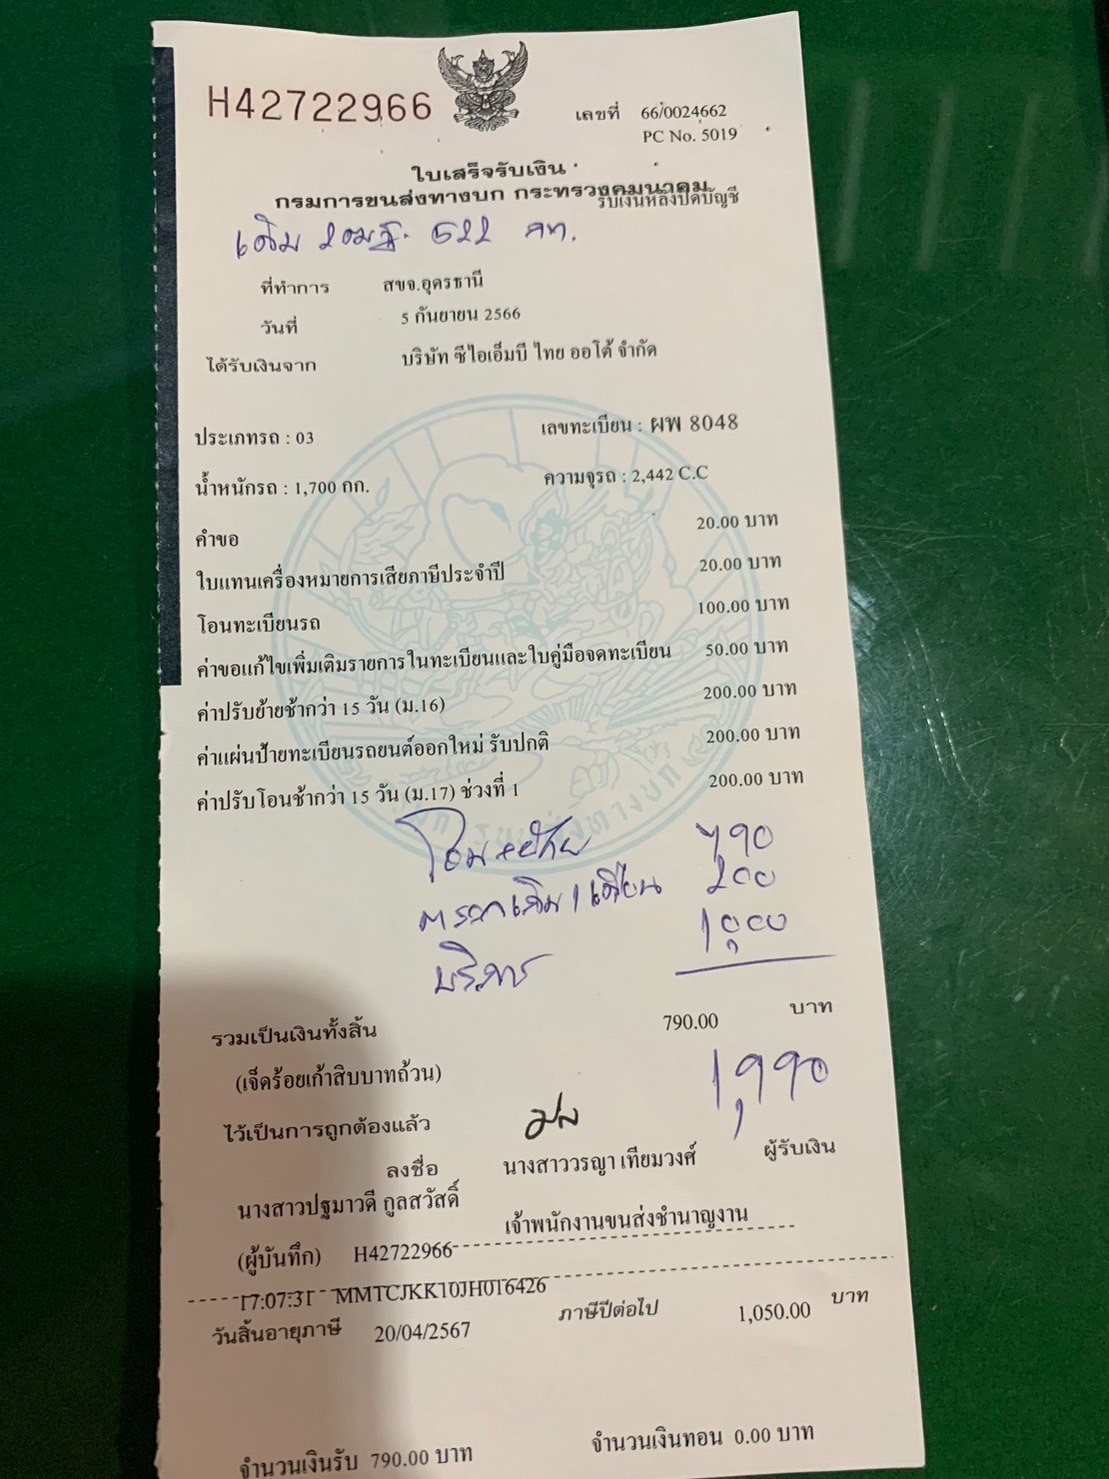 H42722966
เลขที่ 66/0024662
PC No. 5019
ใบเสร็จรับเงิน
กรมการขนส่งทางบก กระทรวงคมนาคม
รับเงินหลังปิดบัญชี
เดิม 522 กท.
ที่ทำการ สขจ.อุดรธานี
วันที่ 5 กันยายน 2566
ได้รับเงินจาก บริษัท ซีไอเอ็มบี ไทย ออโต้ จำกัด
ประเภทรถ : 03 เลขทะเบียน : ผพ 8048
น้ำหนักรถ : 1,700 กก. ความจุรถ : 2,442 C.C
คำขอ 20.00 บาท
ใบแทนเครื่องหมายการเสียภาษีประจำปี 20.00 บาท
โอนทะเบียนรถ 100.00 บาท
ค่าขอแก้ไขเพิ่มเติมรายการในทะเบียนและใบคู่มือจดทะเบียน 50.00 บาท
ค่าปรับย้ายช้ากว่า 15 วัน (ม.16) 200.00 บาท
ค่าแผ่นป้ายทะเบียนรถยนต์ออกใหม่ รับปกติ 200.00 บาท
ค่าปรับโอนช้ากว่า 15 วัน (ม.17) ช่วงที่ 1 200.00 บาท
โอน+ย้าย 790
ตรอ เดิม 1 เดือน 200
บริการ 1,000
รวมเป็นเงินทั้งสิ้น 790.00 บาท
(เจ็ดร้อยเก้าสิบบาทถ้วน) 1,990
ไว้เป็นการถูกต้องแล้ว
ลงชื่อ นางสาววรญา เทียมวงศ์ ผู้รับเงิน
นางสาวปฐมาวดี กูลสวัสดิ์ เจ้าพนักงานขนส่งชำนาญงาน
(ผู้บันทึก) H42722966
17:07:31 MMTCJKK10JH016426
วันสิ้นอายุภาษี 20/04/2567 ภาษีปีต่อไป 1,050.00 บาท
จำนวนเงินรับ 790.00 บาท จำนวนเงินทอน 0.00 บาท